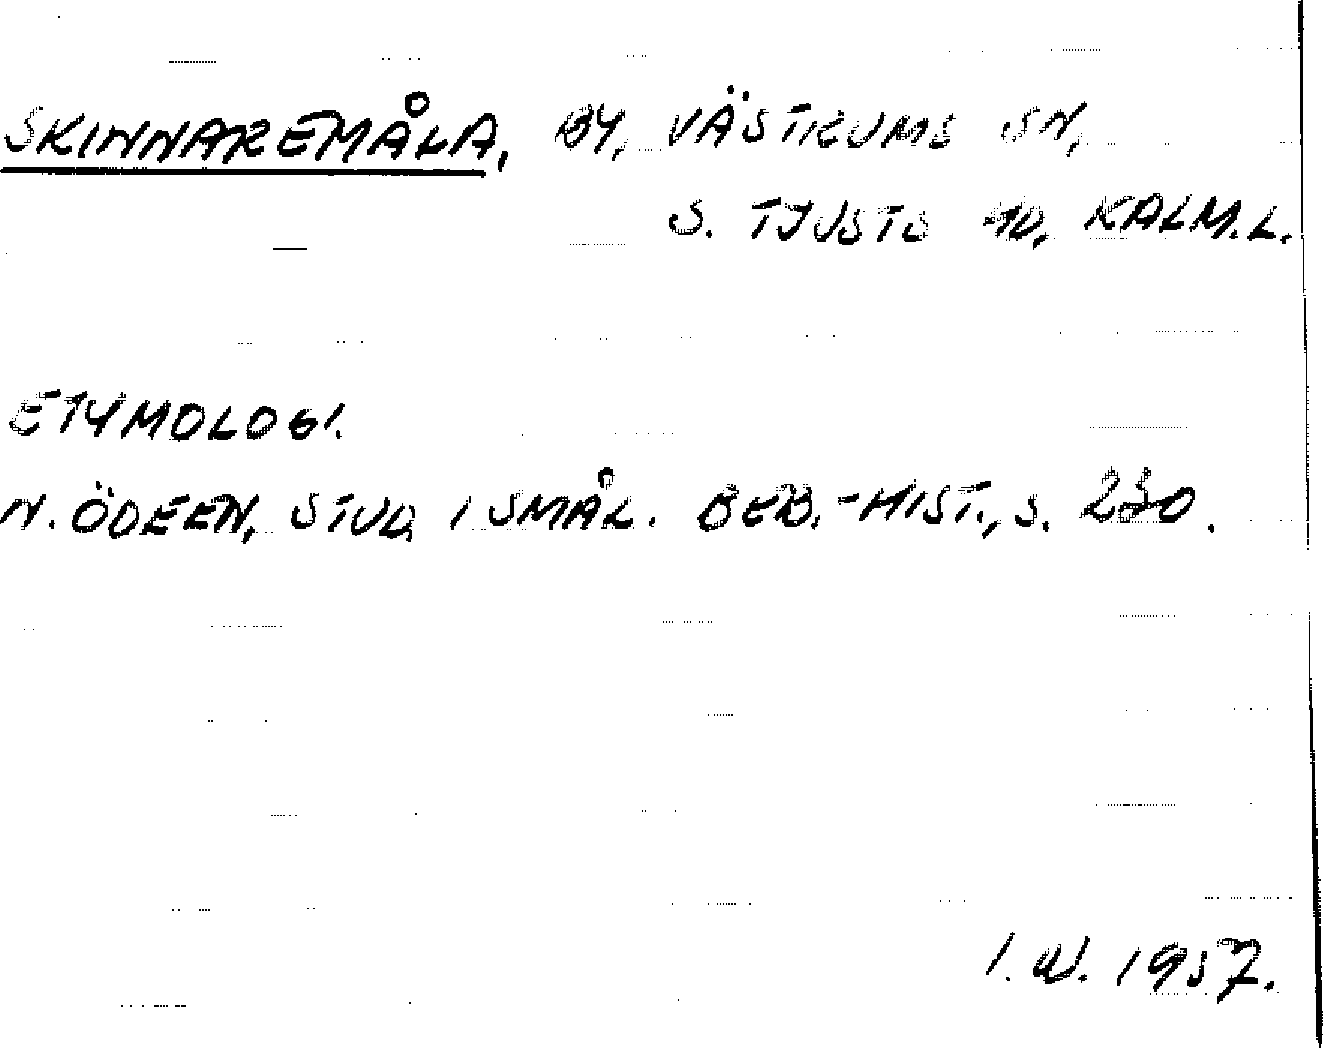 SKINNAREMÅLA, BY, VÄSTRUMS SN,
S. TJUSTS HD, KALM.L.
ETYMOLOGI.
N. ÖDEEN, STUD. I SMÅL. BEB.-HIST., S. 230.
I.W. 1957.